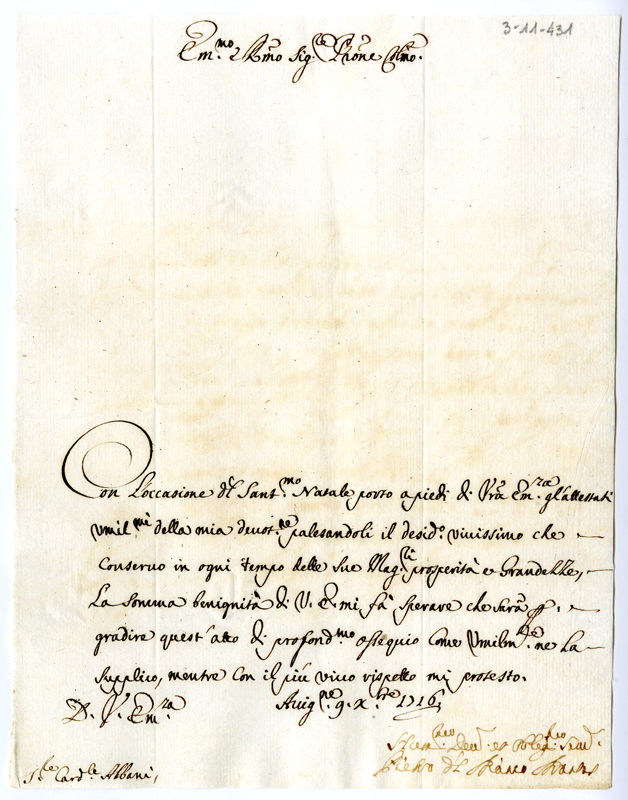 3-11-431
Em.mo e Rmo Sig.re Prone Colmo.
Con l'occasione dl Sant.mo Natale porto a piedi di Vra Em.za gl'attestati
Umil.mi della mia deuot.ne palesandoli il desid.o viuissimo che
Conseruo in ogni tempo delle sue Mag.ri prosperità e Grandezze,
La somma benignità di V. E. mi fà sperare che sarà p.
gradire quest'atto di profond.mo ossequio Come Umilm.te ne La
supplico, mentre con il più viuo rispetto mi protesto.
D. V. Em.za
Auig.ne 9. X.bre 1716,
Deu. et Oblig.mo
Pietro dl
S.re Card.le Albani,